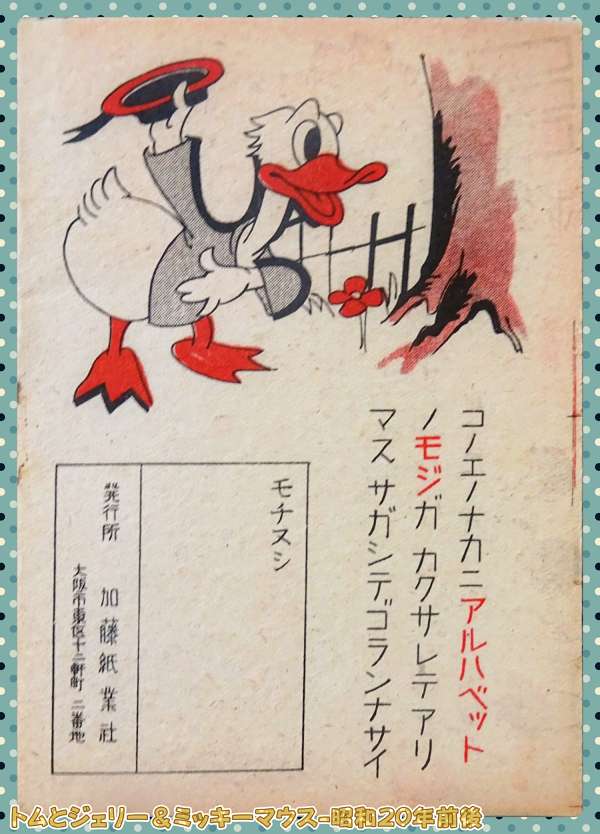 コノエノナカニアルハベット
ノモジガ カクサレテアリ
マス サガシテゴランナサイ
モチスシ
発行所 加藤紙業社
大阪市東区十二軒町 二番地
トムとジェリー&ミッキーマウス-昭和20年前後